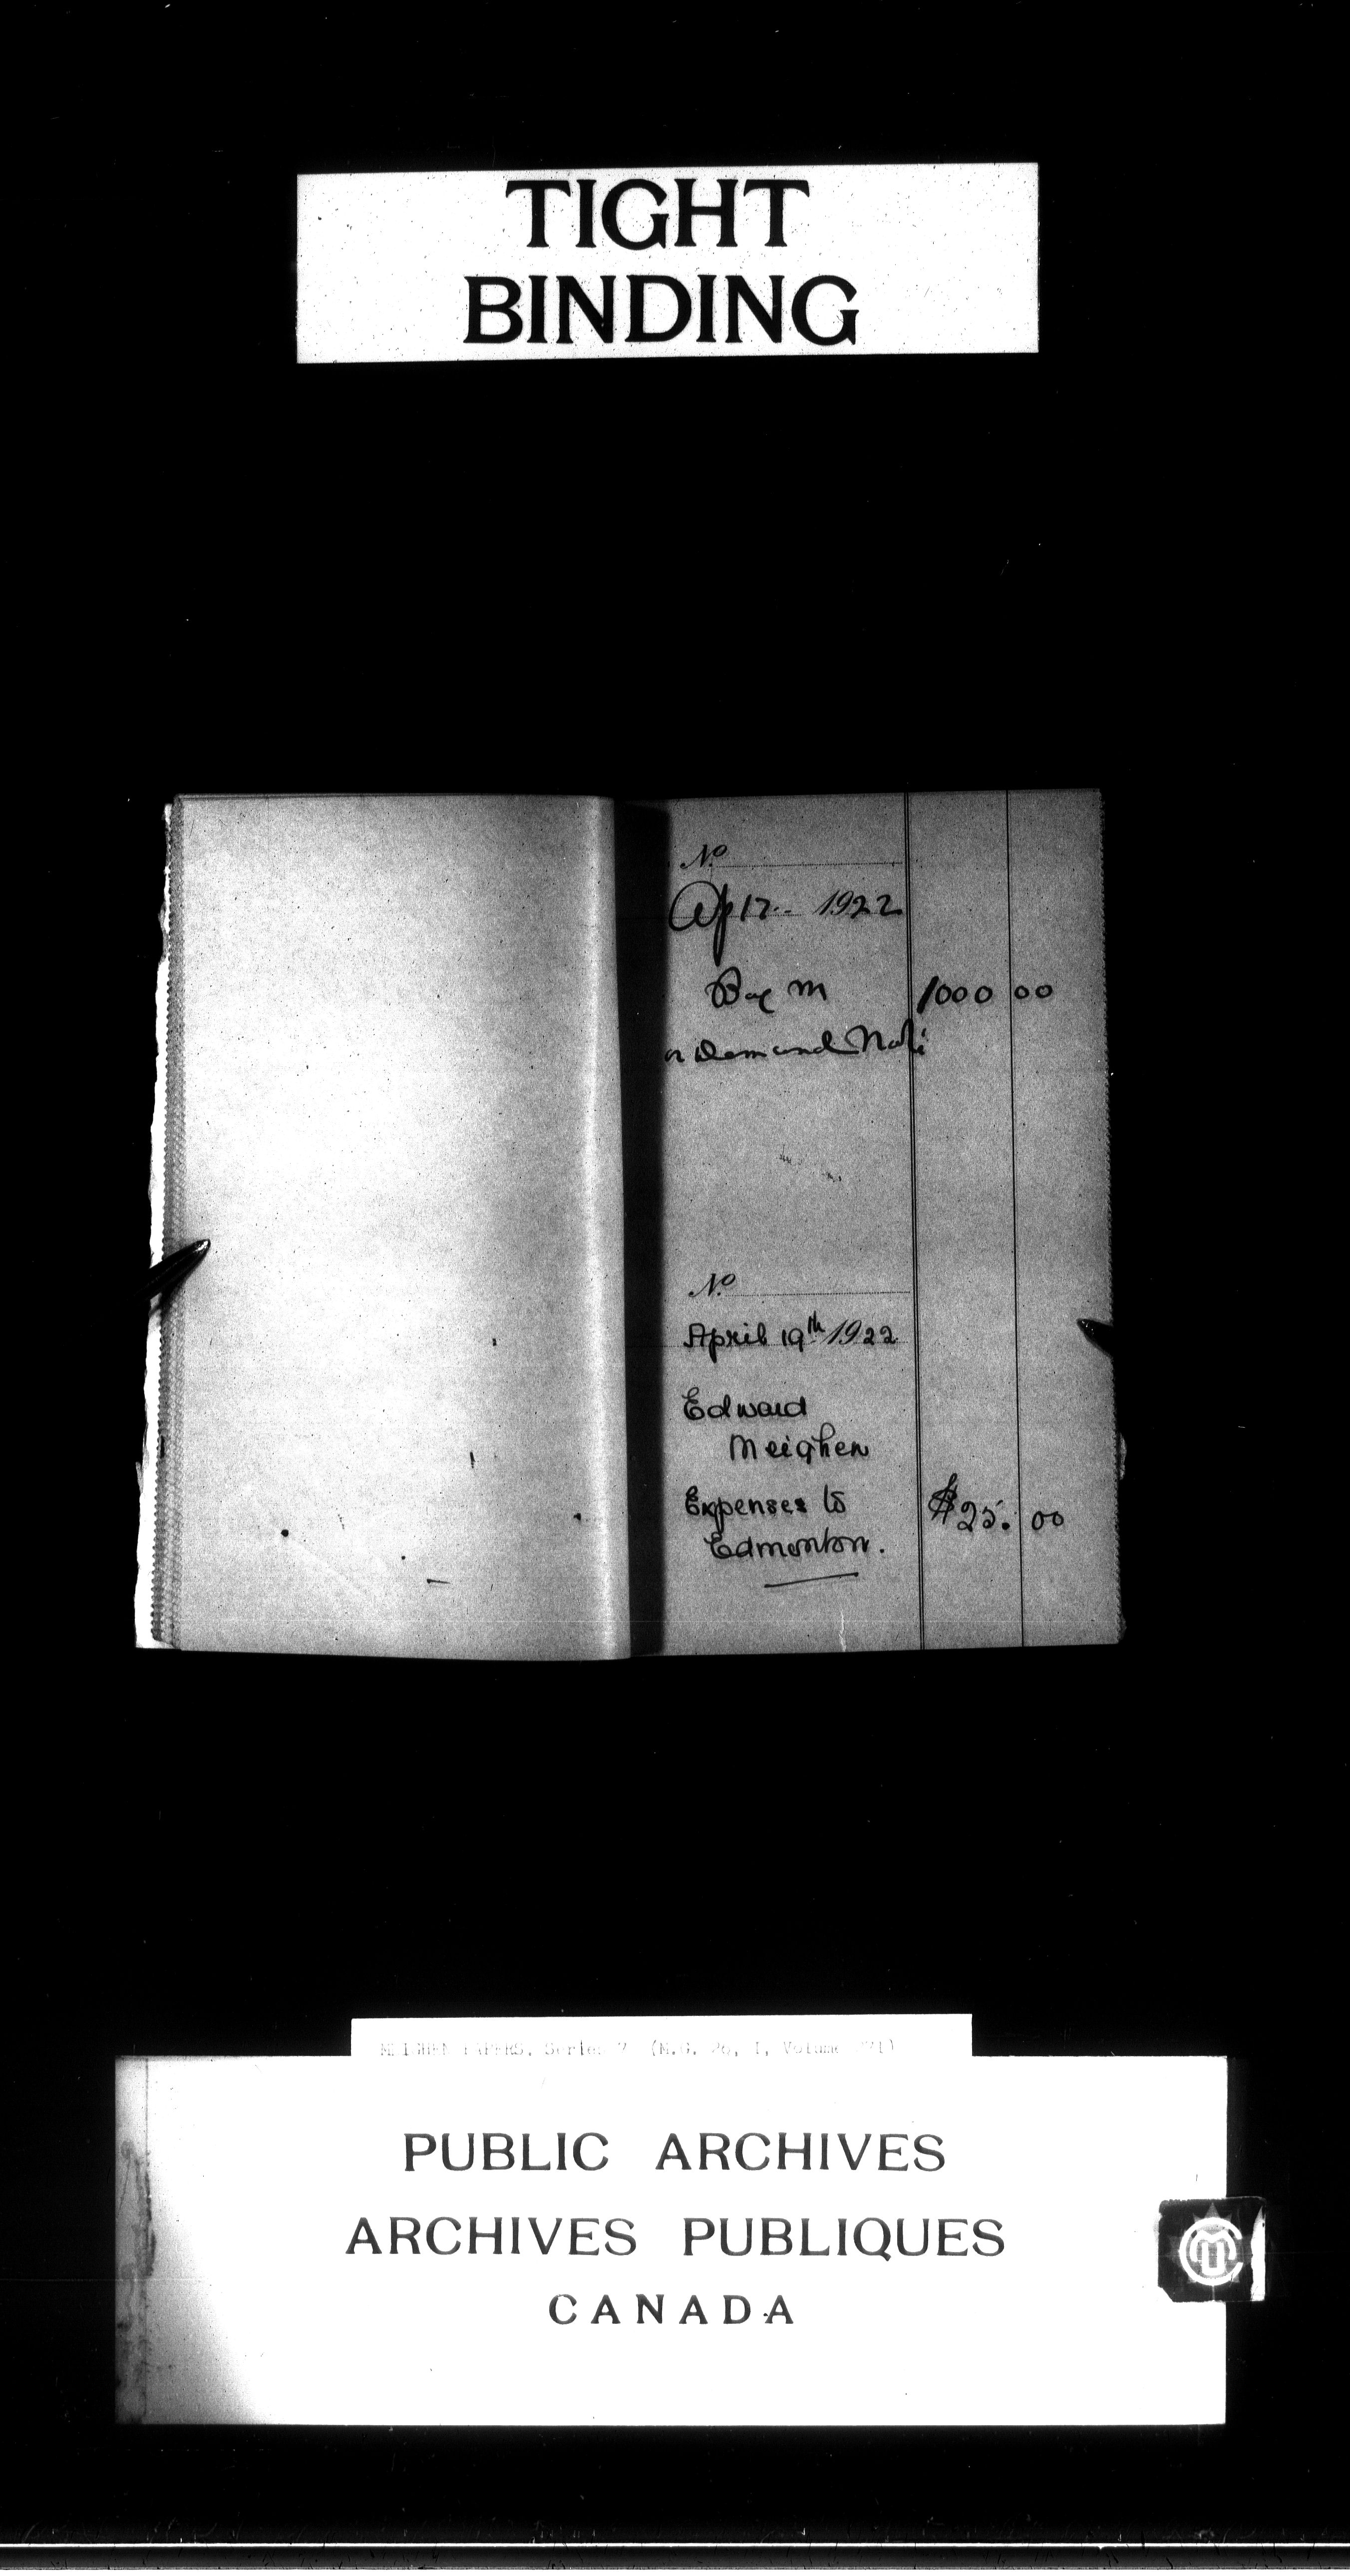 TIGHT
BINDING
No
Ap 17 1922
B of M 1000 00
on Demand Note
No
April 19th 1922
Edward
Meighen
Expenses to $25. 00
Edmonton.
MEIGHEN PAPERS, Series 7 (M.G. 26, I, Volume
PUBLIC ARCHIVES
ARCHIVES PUBLIQUES
CANADA